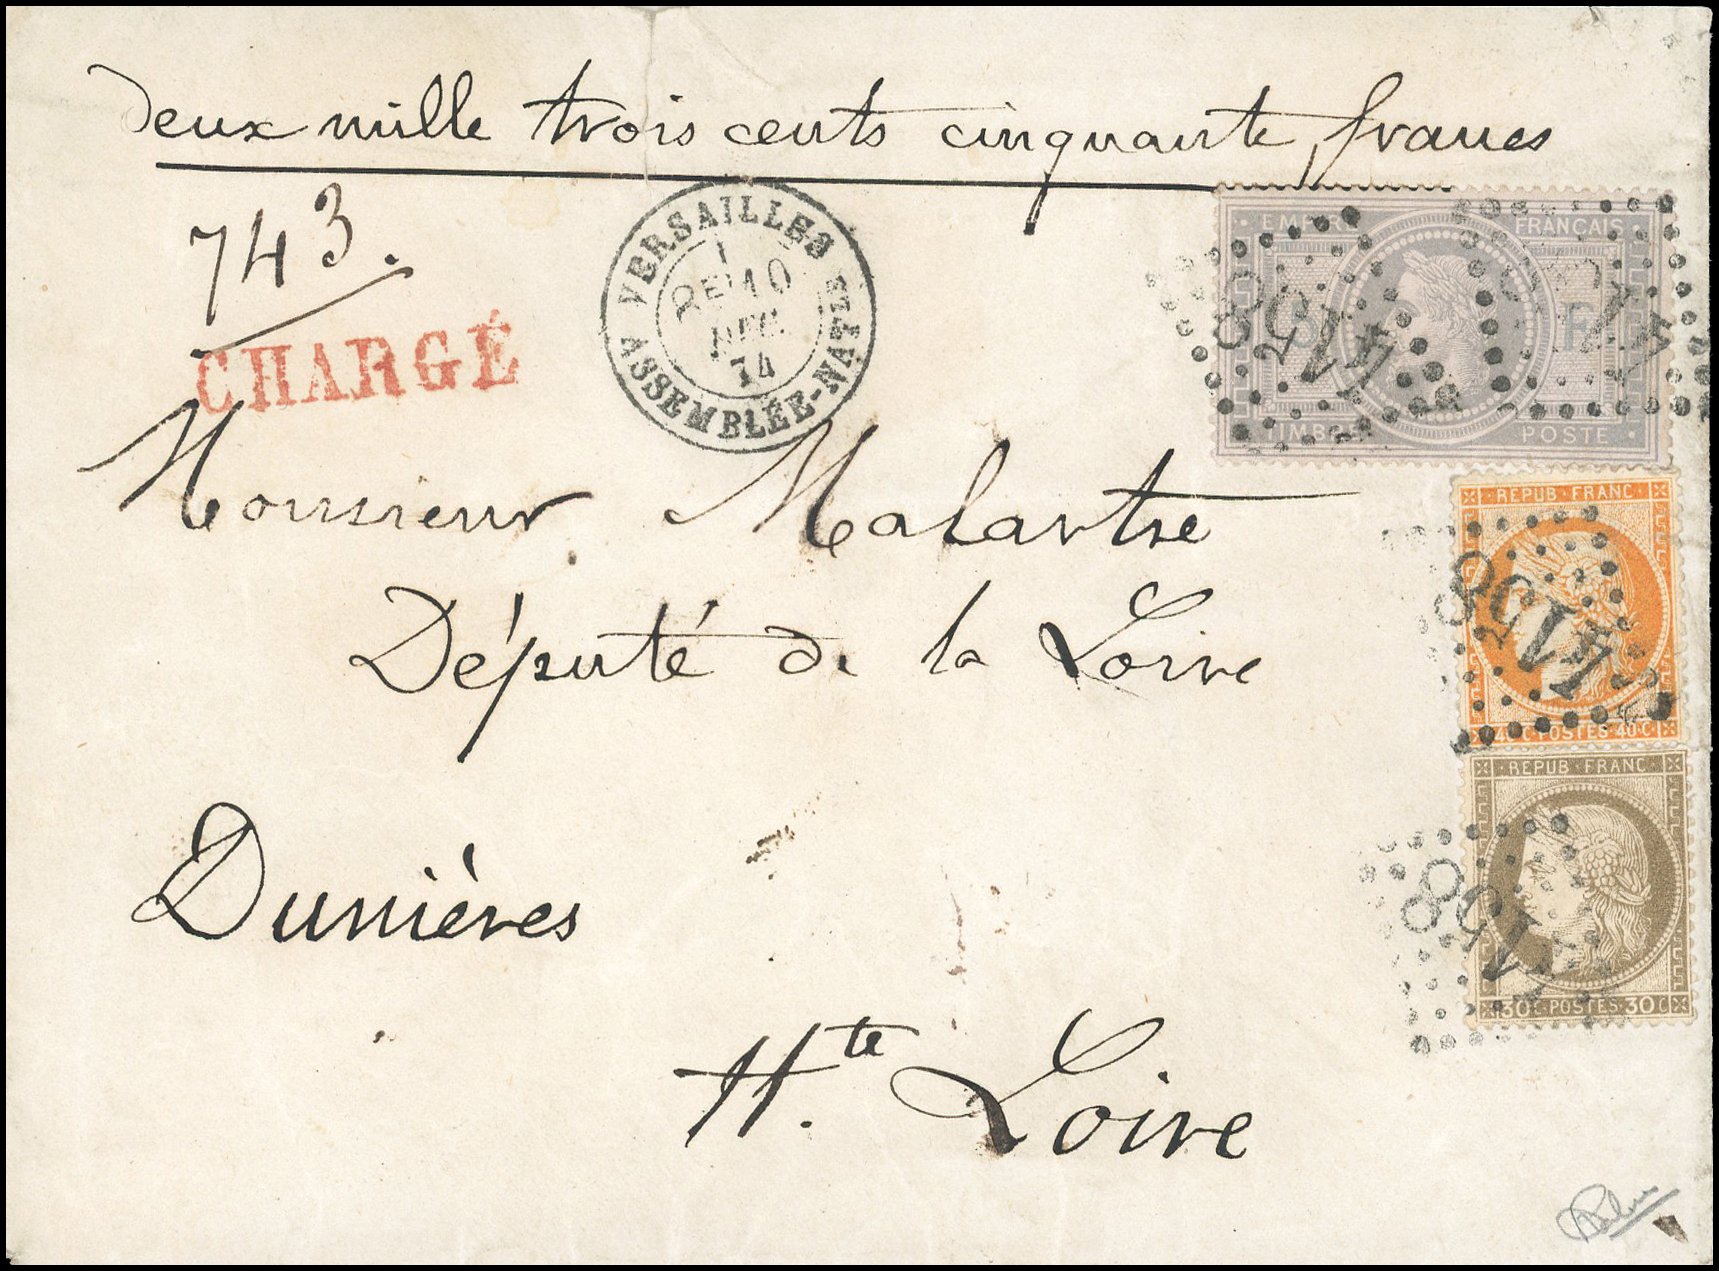 deux mille trois cents cinquante francs
743.
CHARGÉ
VERSAILLES
10
DEC.
74
ASSEMBLÉE-NATLE
EMPIRE FRANÇAIS
5 F
TIMBRE POSTE
4158
Monsieur Malartre
Député de la Loire
REPUB·FRANC·
4158
40·C·POSTES·40·C
Dunières
REPUB·FRANC·
4158
30·C·POSTES·30·C
Hte Loire